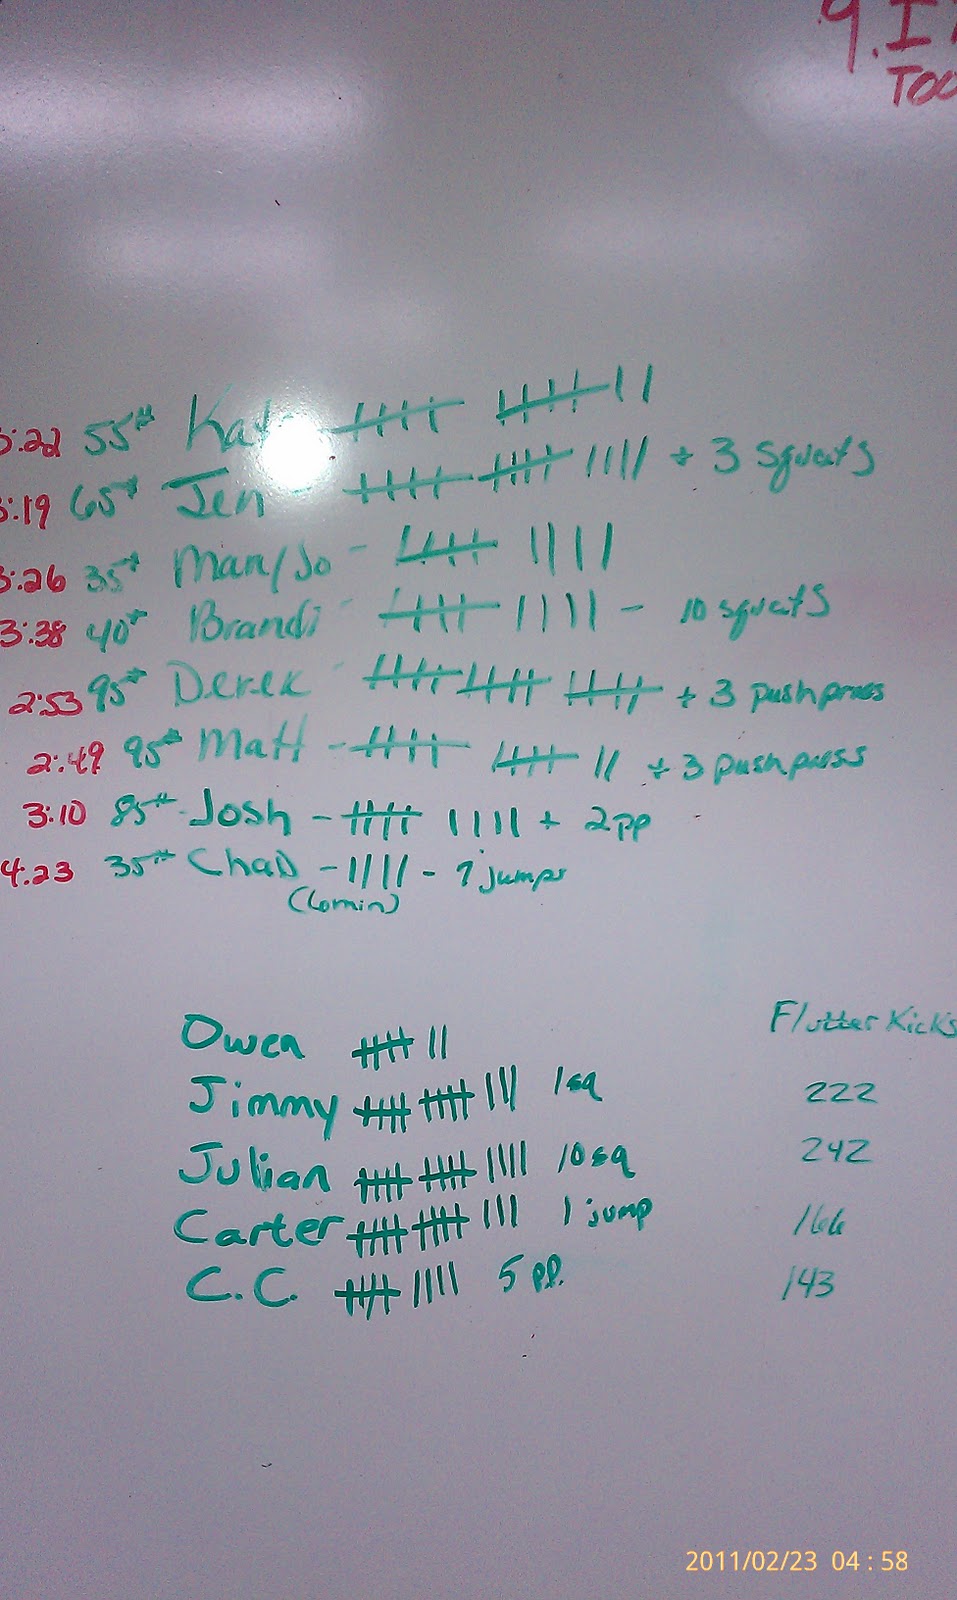 9. I
TOO
3:22 55# Kat - 卌 卌 ||
3:19 65# Jen - 卌 卌 |||| + 3 squats
3:26 35# Mary/Jo - 卌 ||||
3:38 40# Brandi - 卌 |||| - 10 squats
2:53 95# Derek - 卌 卌 卌 + 3 push press
2:49 95# Matt - 卌 卌 || + 3 push press
3:10 85# Josh - 卌 |||| + 2 pp
4:23 35# Chad - |||| - 9 jumps
(6min)
Flutter Kicks
Owen 卌 ||
Jimmy 卌 卌 ||| 1 sq 222
Julian 卌 卌 |||| 10 sq 242
Carter 卌 卌 ||| 1 jump 166
C.C. 卌 |||| 5 pp. 143
2011/02/23 04:58